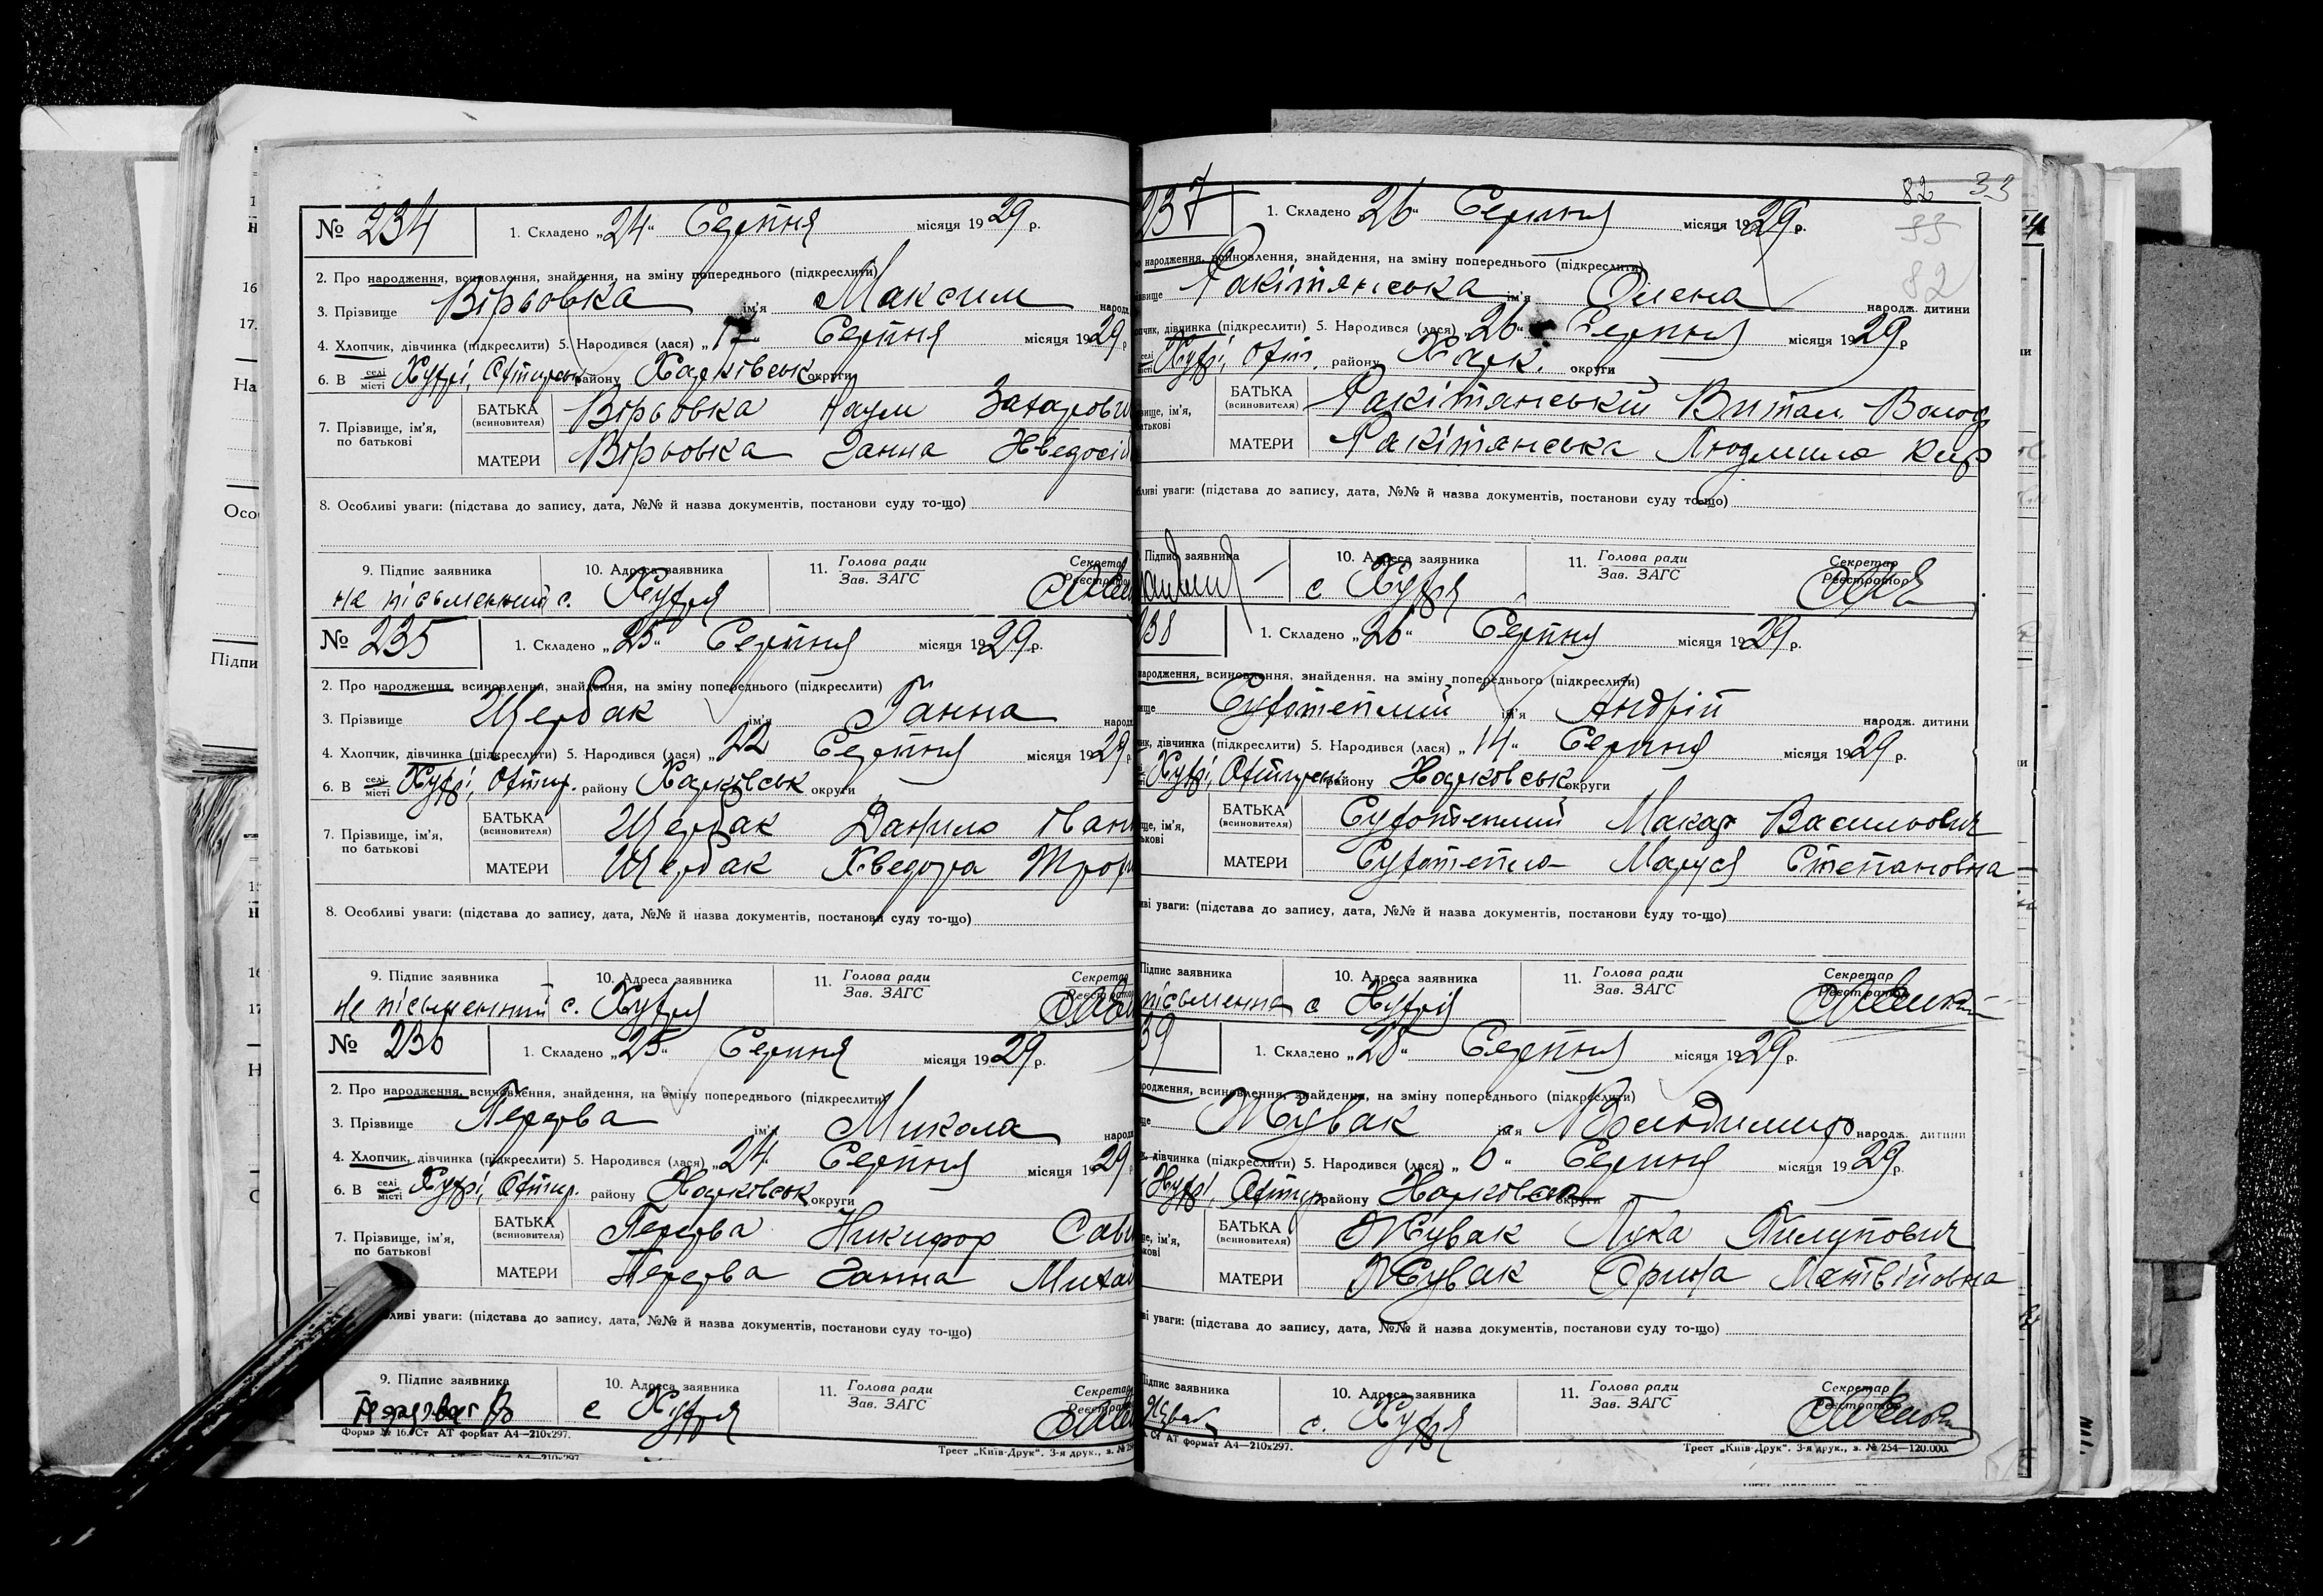 № 234
1. Складено „24“ Серпня місяця 1929 р.
2. Про народження, всиновлення, знайдення, на зміну попереднього (підкреслити)
3. Прізвище Вірьовка ім'я Максим народж
4. Хлопчик, дівчинка (підкреслити) 5. Народився (лася) „17“ Серпня місяця 1929 р
6. В селі місті Хухрі, Охтирськ району Харківськ округи
7. Прізвище, ім'я, по батькові
БАТЬКА (всиновителя) Вірьовка Наум Захарови
МАТЕРИ Вірьовка Ганна Хведосі
8. Особливі уваги: (підстава до запису, дата, №№ й назва документів, постанови суду то-що)
9. Підпис заявника 10. Адреса заявника 11. Голова ради Зав. ЗАГС Секретар Реєстратор
не пісьменний с. Хухря
№ 235
1. Складено „25“ Серпня місяця 1929 р.
2. Про народження, всиновлення, знайдення, на зміну попереднього (підкреслити)
3. Прізвище Щербак ім'я Ганна народж
4. Хлопчик, дівчинка (підкреслити) 5. Народився (лася) „22 Серпня місяця 1929 р
6. В селі місті Хухрі, Охтир. району Харковськ округи
7. Прізвище, ім'я, по батькові
БАТЬКА (всиновителя) Щербак Данило Іван
МАТЕРИ Щербак Хведора Троф
8. Особливі уваги: (підстава до запису, дата, №№ й назва документів, постанови суду то-що)
9. Підпис заявника 10. Адреса заявника 11. Голова ради Зав. ЗАГС Секретар Реєстратор
не пісьменний с. Хухря
№ 236
1. Складено „25“ Серпня місяця 1929 р.
2. Про народження, всиновлення, знайдення, на зміну попереднього (підкреслити)
3. Прізвище Перерва ім'я Микола народж
4. Хлопчик, дівчинка (підкреслити) 5. Народився (лася) „24“ Серпня місяця 1929 р
6. В селі місті Хухрі, Охтир. району Харковськ округи
7. Прізвище, ім'я, по батькові
БАТЬКА (всиновителя) Перерва Никифор Сав
МАТЕРИ Перерва Ганна Михай
ливі уваги: (підстава до запису, дата, №№ й назва документів, постанови суду то-що)
9. Підпис заявника 10. Адреса заявника 11. Голова ради Зав. ЗАГС Секретар Реєстратор
с Хухря
Форма № 16. Ст АТ формат А4—210х297.
Трест „Київ-Друк“. 3-я друк., з. № 25
82 33
33
82
237
1. Складено 26“ Серпня місяця 1929 р.
народження, всиновлення, знайдення, на зміну попереднього (підкреслити)
звище Ракітянська ім'я Олена народж. дитини
пчик, дівчинка (підкреслити) 5. Народився (лася) „26“ Серпня місяця 1929 р
селі місті Хухрі, Охтт. району Харк. округи
вище, ім'я, батькові
БАТЬКА (всиновителя) Ракітянський Витал. Волод
МАТЕРИ Ракітянська Людмила Кир
бливі уваги: (підстава до запису, дата, №№ й назва документів, постанови суду то-що)
Підпис заявника 10. Адреса заявника 11. Голова ради Зав. ЗАГС Секретар Реєстратор
с Хухря
238
1. Складено „26“ Серпня місяця 1929 р.
народження, всиновлення, знайдення, на зміну попереднього (підкреслити)
ище Сухотеплий ім'я Андрій народж. дитини
ик, дівчинка (підкреслити) 5. Народився (лася) „14“ Серпня місяця 1929 р.
Хухрі, Охтирськ району Харковськ округи
ще, ім'я, ькові
БАТЬКА (всиновителя) Сухотеплий Макар Васильович
МАТЕРИ Сухотепла Маруся Степановна
иві уваги: (підстава до запису, дата, №№ й назва документів, постанови суду то-що)
Підпис заявника 10. Адреса заявника 11. Голова ради Зав. ЗАГС Секретар Реєстратор
пісьменна с Хухря
39
1. Складено „28“ Серпня місяця 1929 р.
родження, всиновлення, знайдення, на зміну попереднього (підкреслити)
ще Жувак ім'я Володимир народж. дитини
к, дівчинка (підкреслити) 5. Народився (лася) „6“ Серпня місяця 1929 р.
Хухрі, Охтир. району Харковськ округи
ще, ім'я, кові
БАТЬКА (всиновителя) Жувак Лука Пилипович
МАТЕРИ Жувак Орина Матвійовна
ві уваги: (підстава до запису, дата, №№ й назва документів, постанови суду то-що)
Підпис заявника 10. Адреса заявника 11. Голова ради Зав. ЗАГС Секретар Реєстратор
с. Хухря
Ст АТ формат А4—210х297.
Трест „Київ-Друк“. 3-я друк., з. № 254—120.000.